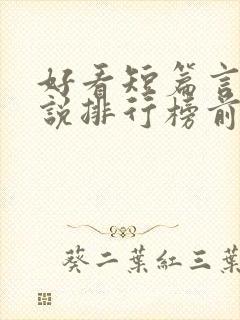 好看短篇言
說排行榜前
葵二葉紅三葉